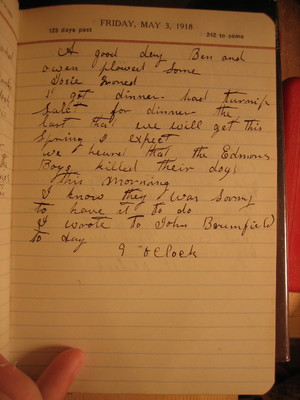 FRIDAY, MAY 3, 1918
123 days past 242 to come
A good day Ben and
owen plowed some
Josie Ironed
I got dinner had turnip
Salit for dinner the
last that we will get this
Spring I expect
we heard that the Edmons
Boys killed their dogs
this Morning
I know they was Sorry
to have it to do
I wrote to John Brumfield
to day
9 "oClock